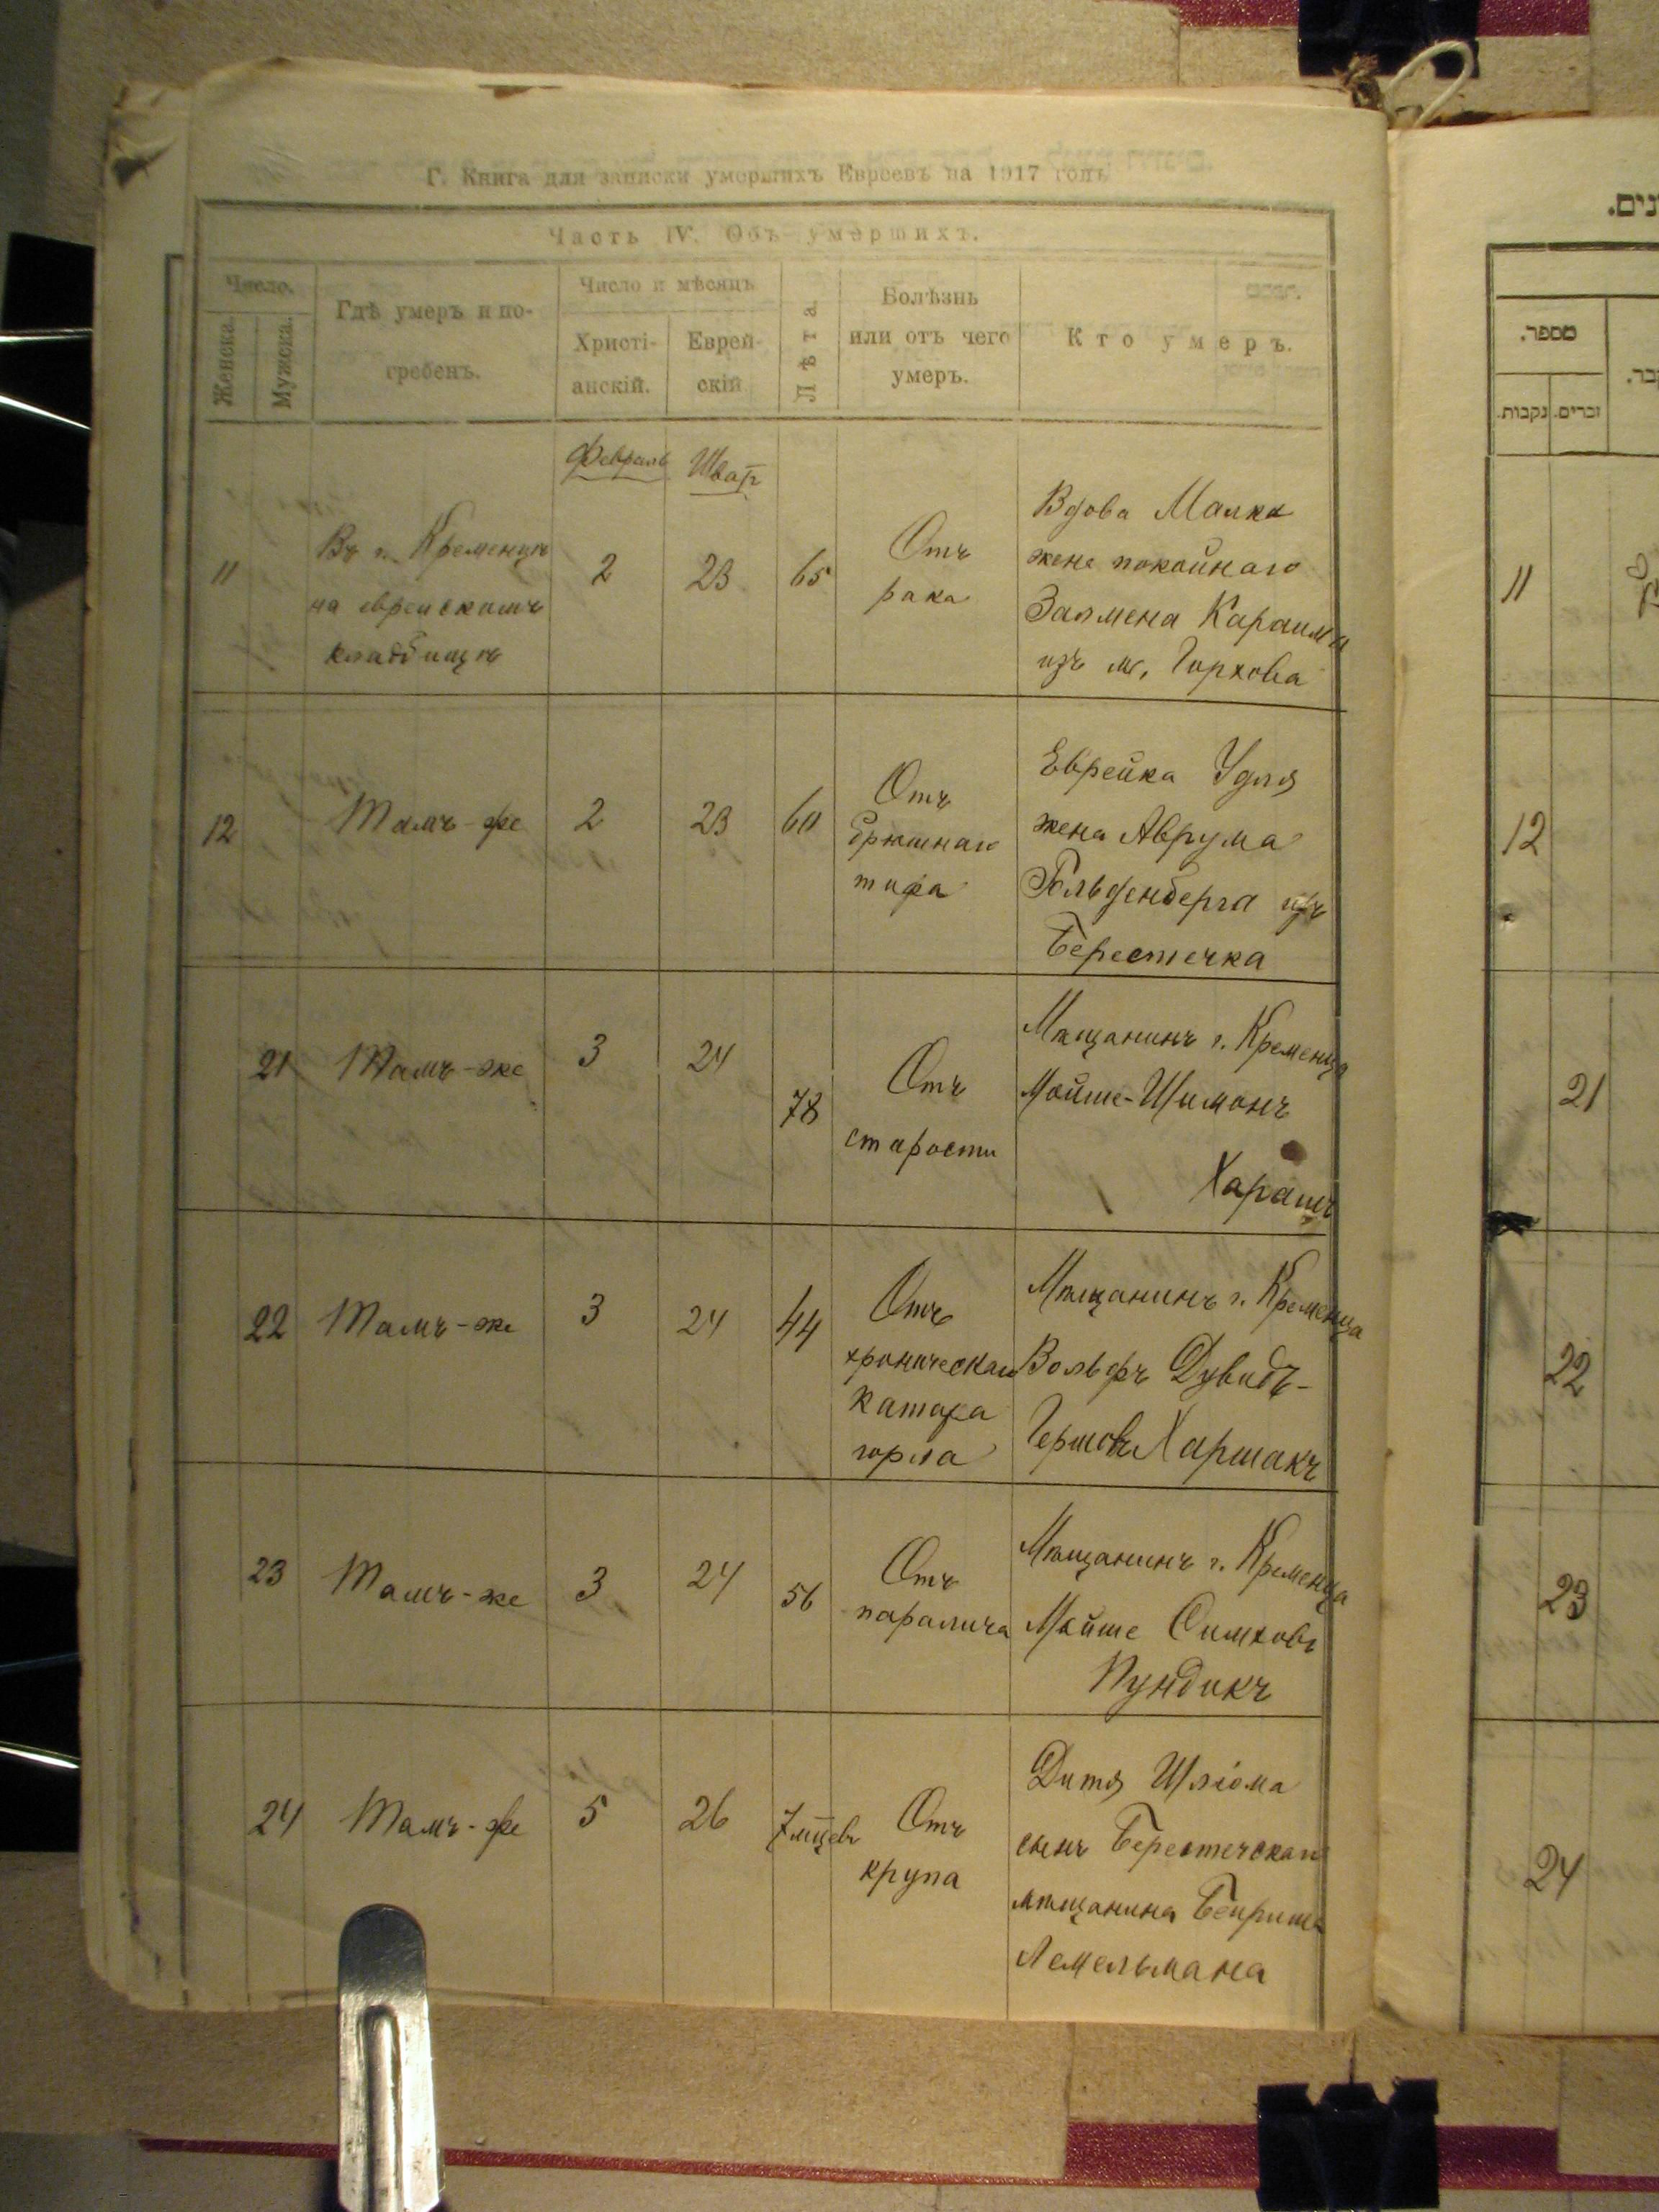 Г. Книга для записки умершихъ Евреевъ на 1917 годъ
Часть IV. Объ умершихъ.
Число.
Женска.
Мужска.
Гдѣ умеръ и по-
гребенъ.
Число и мѣсяцъ
Христі-
анскій.
Еврей-
скій
Лѣта.
Болѣзнь
или отъ чего
умеръ.
Кто умеръ.
Февраль Шват
11
Въ г. Кременцѣ
на еврейскомъ
кладбищѣ
2
23
65
Отъ
рака
Вдова Малка
жена покойнаго
Залмена Караима
изъ м. Горхова
12
Тамъ-же
2
23
60
Отъ
брюшнаго
тифа
Еврейка Удля
жена Аврума
Гольденберга изъ
Берестечка
21
Тамъ-же
3
24
78
Отъ
старости
Мѣщанинъ г. Кременца
Мойше-Шимонъ
22
Тамъ-же
3
24
44
Отъ
хроническаго
катара
горла
Мѣщанинъ г. Кременца
Вольфъ Дувидъ-
Гершовъ Харшакъ
23
Тамъ-же
3
24
56
Отъ
паралича
Мѣщанинъ г. Кременца
Мойше Симховъ
Пундикъ
24
Тамъ-же
5
26
7 мѣцевъ
Отъ
крупа
Дитя Шліома
сынъ Берестечскаго
мѣщанина Бенриша
Лемельмана
נים.
מספר.
קבר.
זכרים.
נקבות.
11
12
21
22
23
24